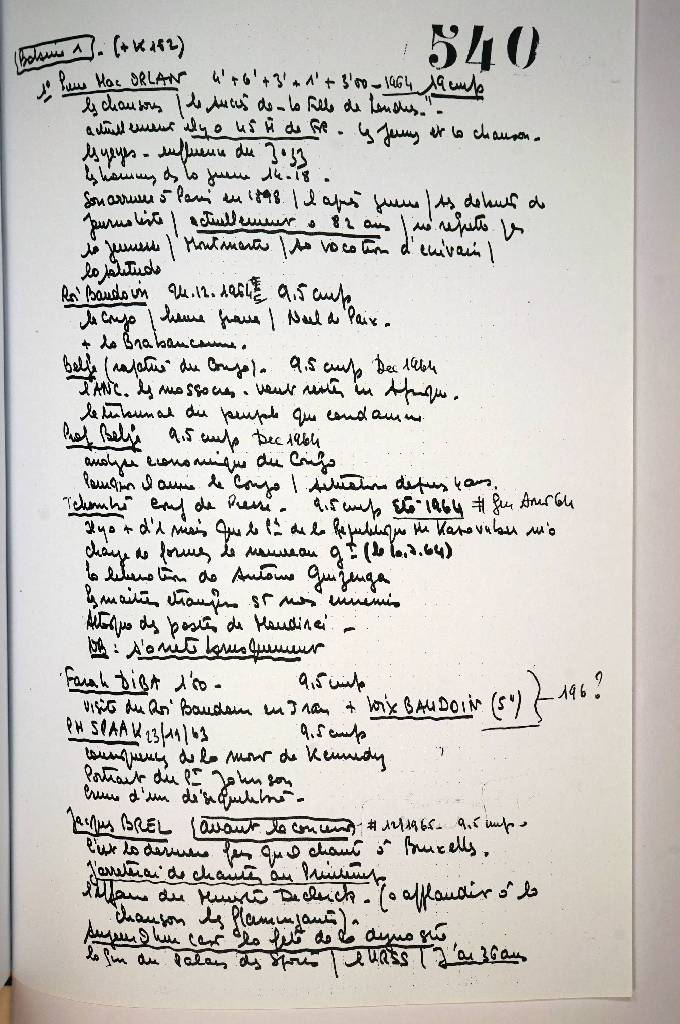 540
Bobine 1. (+ K152)
1° Pierre Mac ORLAN 4' + 6' + 3' + 1' + 3'00 - 1964 19 cm/s
les chansons | le succès de "la fille de Londres".
actuellement il y a 45 de - les jeunes et la chanson.
les yeyes - influence du
les hommes de la guerre 14-18.
Son arrivée à Paris en 1898 | l'après guerre | ses débuts de
journaliste | actuellement a 82 ans | ne regrette pas
la jeunesse | Montmartre | sa vocation d'écrivain |
la solitude
Roi Baudouin 24.12.1964 9.5 cm/s
le Congo | heure grave | Noël de Paix.
+ la Brabançonne.
Belge (rapatrié du Congo). 9.5 cm/s Dec 1964
l'ANC. les massacres. veut rester en Afrique.
le tribunal du peuple qui condamne
Prof. Belge 9.5 cm/s Dec 1964
analyse économique du Congo
Pourquoi j'aime le Congo | situation depuis 4 ans.
Tchombé Conf de Presse. 9.5 cm/s Eté 1964 #
Il y a + d'1 mois que le Pt de la République Mr Kasavubu m'a
chargé de former le nouveau gt (le 10.7.64)
la libération de Antoine Gizenga
les maîtres étrangers st nos ennemis
Attaque des postes de
NB : s'arrête brusquement
Farah DIBA 1'50 - 9,5 cm/s
visite du Roi Baudouin en Iran + VOIX BAUDOIN (5") } 196 ?
PH SPAAK 23/11/63 9.5 cm/s
conséquences de la mort de Kennedy
Portrait du Pt Johnson
Crime d'un déséquilibré.
Jacques BREL (avant le concert) # 12/1965 - 9.5 cm/s -
C'est la dernière fois qu'il chante à Bruxelles.
J'arrêterai de chanter au Printemps
l'affaire du Ministre Declerck. (a applaudir à la
chanson les flamingants).
Aujourd'hui c'est la fête de la dynastie
la fin du Palais des Sports | l'URSS | J'ai 36 ans